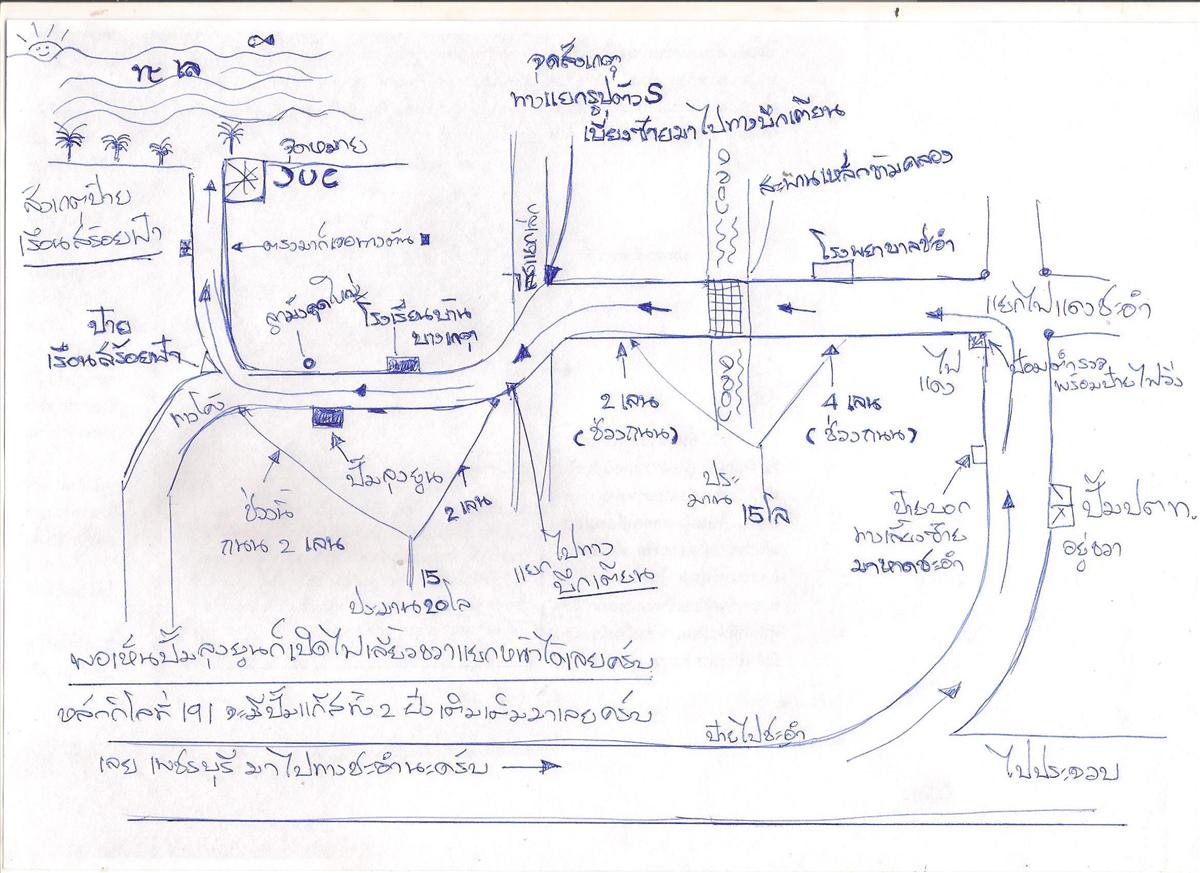 ทะเล
จุดสังเกตุ
ทางแยกรูปตัว S
เบี่ยงซ้ายมาไปทางปึกเตียน
จุดหมาย
JUC
สะพานเหล็กข้ามคลอง
สังเกตป้าย
เรือนสร้อยฟ้า
ตรงมาก็เจอทางตัน
โรงพยาบาลชะอำ
แยกไฟแดงชะอำ
โรงเรียนบ้าน
บางเกตุ
ป้าย
เรือนสร้อยฟ้า
ไฟ
แดง
ป้อมตำรวจ
พร้อมป้ายไฟวิ่ง
ทางโค้ง
2 เลน
(ช่วงถนน)
4 เลน
(ช่วงถนน)
ปั๊มลุงยูน
2 เลน
ประ
มาณ
15 โล
ช่วงนี้
ถนน 2 เลน
ป้ายบอก
ทางเลี้ยงซ้าย
มาหาดชะอำ
ปั๊มปตท.
อยู่ขวา
แยก
ไปทาง
ปึกเตียน
15
ประมาณ 20 โล
พอเห็นปั๊มลุงยูนก็เปิดไฟเลี้ยวขวาแยกหน้าได้เลยครับ
หลักกิโลที่ 191 จะมีปั๊มแก๊สทั้ง 2 ฝั่ง เติมเต็มมาเลยครับ
ป้ายไปชะอำ
เลย เพชรบุรี มาไปทางชะอำนะครับ
ไปประจวบ